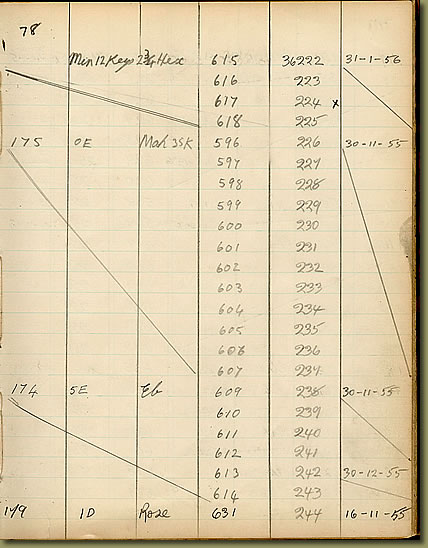 78
Min 12 Keys 2¾ Hex 615 36222 31-1-56
616 223
617 224 x
618 225
175 0E Mah 3SK 596 226 30-11-55
597 227
598 228
599 229
600 230
601 231
602 232
603 233
604 234
605 235
606 236
607 237
174 5E Eb 609 238 30-11-55
610 239
611 240
612 241
613 242 30-12-55
614 243
179 1D Rose 631 244 16-11-55